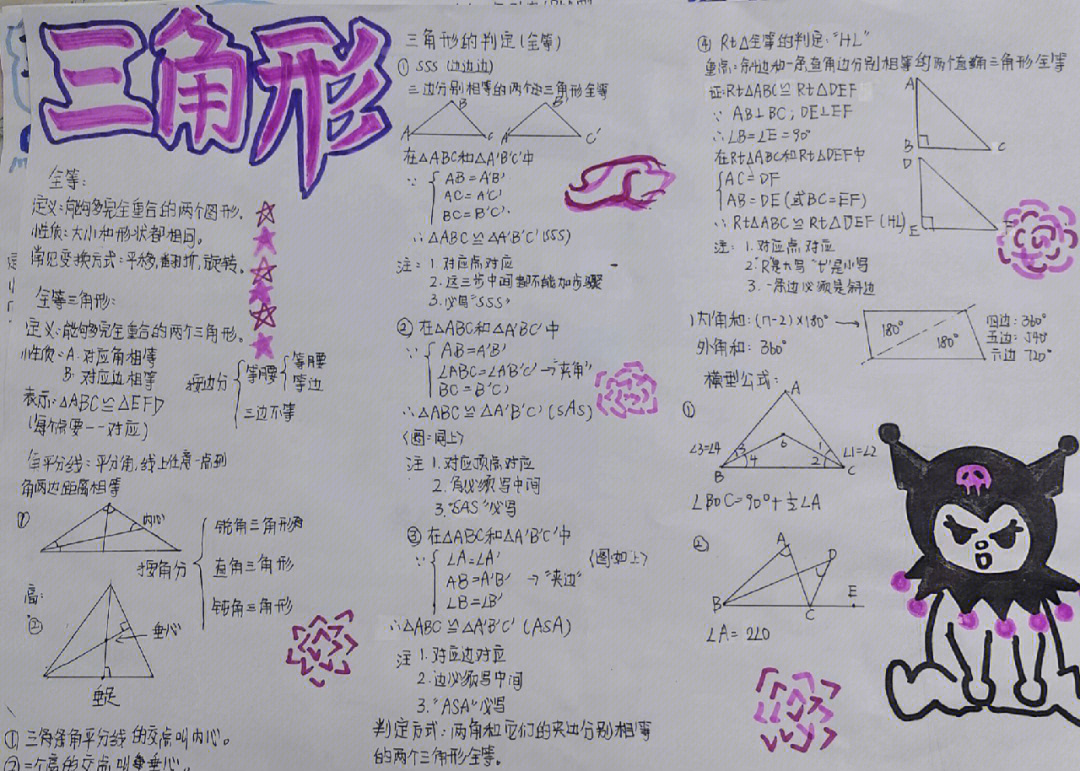 三角形
全等:
定义:能够完全重合的两个图形。
性质:大小和形状都相同。
常见变换方式:平移,翻折,旋转。
全等三角形:
定义:能够完全重合的两个三角形。
性质:A. 对应角相等
B. 对应边相等
表示:△ABC≌△EFD
(每个点要一一对应)
按边分
等腰
等腰
等边
三边不等
角平分线:平分角,线上任意一点到
角两边距离相等
①
内心
按角分
锐角三角形
直角三角形
钝角三角形
高:
②
垂心
垂足
①三条角平分线的交点叫内心。
②三个高的交点叫垂心。
三角形的判定(全等)
① SSS (边边边)
三边分别相等的两个三角形全等
A B C A B' C'
在△ABC和△A'B'C'中
∵ AB=A'B'
AC=A'C'
BC=B'C'
∴△ABC≌△A'B'C'(SSS)
注: 1. 对应点对应
2. 这三步中间都不能加步骤
3. 必写"SSS"
② 在△ABC和△A'B'C'中
∵ AB=A'B'
∠ABC=∠AB'C' →"夹角"
BC=B'C'
∴△ABC≌△A'B'C'(SAS)
(图:同上)
注 1. 对应顶点对应
2. 角必须写中间
3."SAS"必写
③ 在△ABC和△A'B'C'中
∵ ∠A=∠A'
AB=A'B' →"夹边"
∠B=∠B'
(图如上)
∴△ABC≌△A'B'C' (ASA)
注 1. 对应边对应
2. 边必须写中间
3."ASA"必写
判定方式:两角和它们的夹边分别相等
的两个三角形全等。
④ Rt△全等的判定:"HL"
重点:斜边和一条直角边分别相等的两个直角三角形全等
证:Rt△ABC≌Rt△DEF
∵ AB⊥BC;DE⊥EF
∴∠B=∠E=90°
在Rt△ABC和Rt△DEF中
AC=DF
AB=DE(或BC=EF)
∴Rt△ABC≌Rt△DEF(HL)
注: 1. 对应点对应
2."R"是大写"t"是小写
3. 一条边必须是斜边
A
B C
D
E F
内角和:(n-2)×180°→
外角和: 360°
180°
180°
四边:360°
五边:540°
六边 720°
模型公式:
①
A
∠3=∠4 3 4 1 2 ∠1=∠2
B C
∠BOC=90°+½∠A
②
A D
B C E
∠A=2∠D